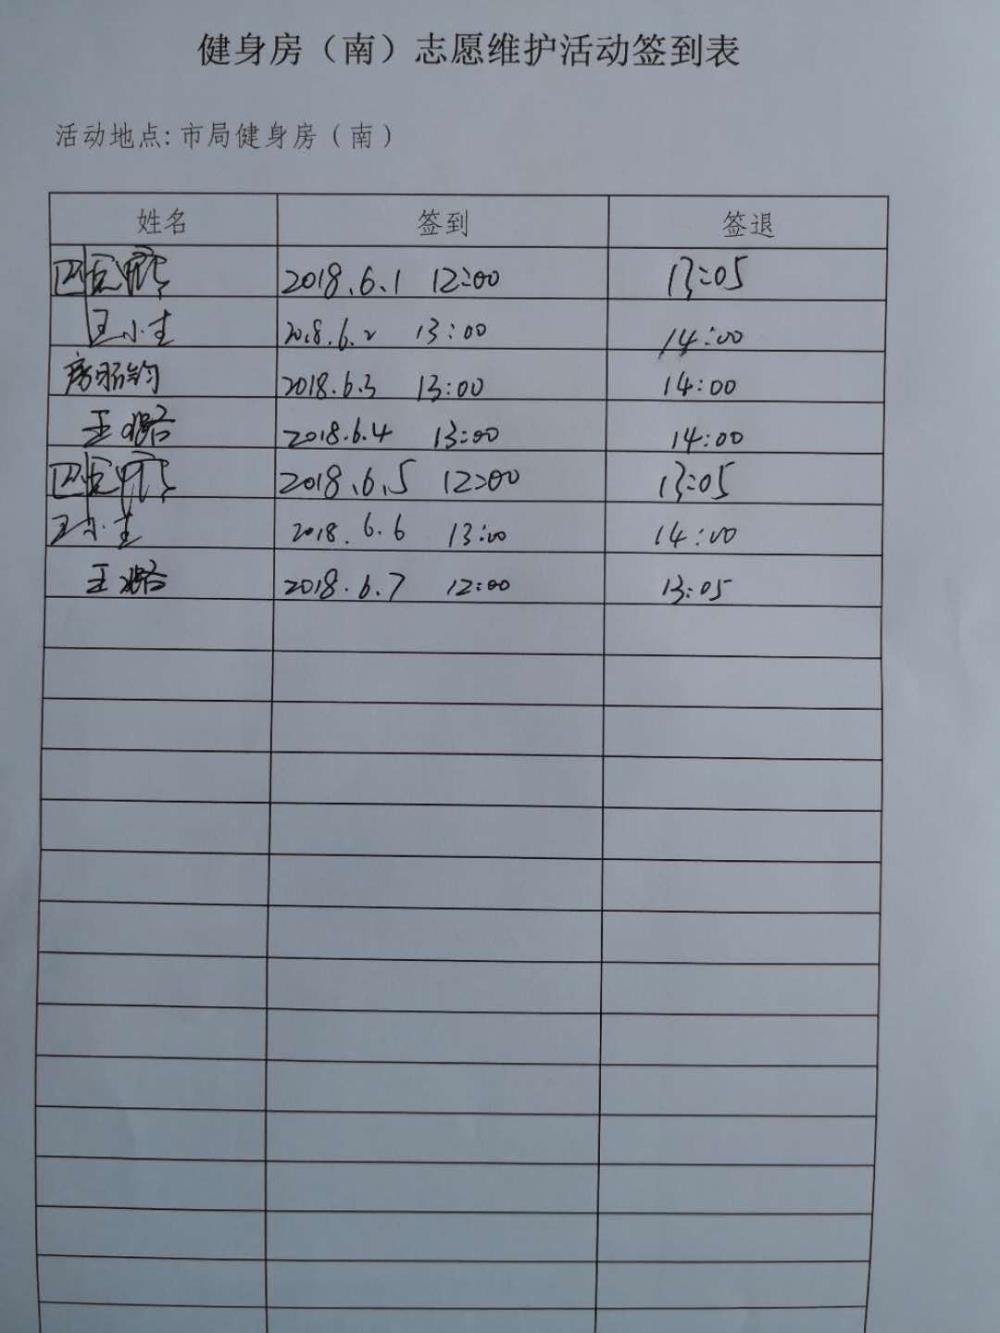 健身房（南）志愿维护活动签到表
活动地点:市局健身房（南）
姓名 签到 签退
2018.6.1 12:00 13:05
王小圭 2018.6.2 13:00 14:00
2018.6.3 13:00 14:00
王 2018.6.4 13:00 14:00
2018.6.5 12:00 13:05
王小圭 2018.6.6 13:00 14:00
王 2018.6.7 12:00 13:05